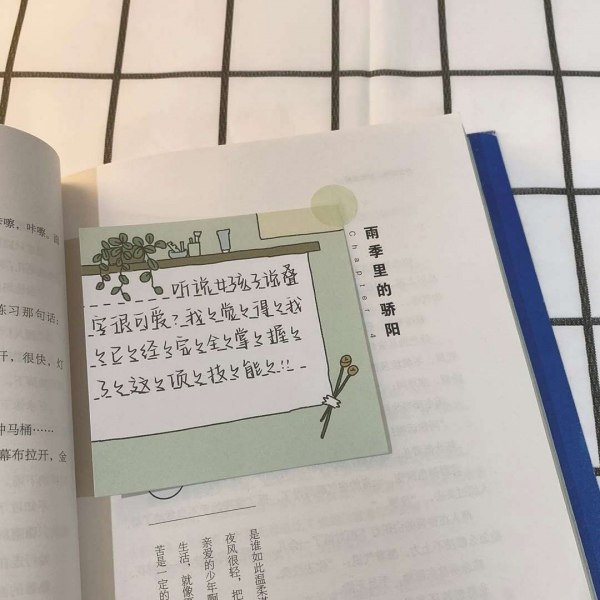 嚓，咔嚓。
练习那句话：
开，很快，灯
冲马桶……
幕布拉开，金
听说女孩子说叠
字很可爱？我々觉々得々我
々已々经々完々全々掌々握々
了々这々项々技々能々!!
雨季里的骄阳
Chapter 4
是谁如此温柔
夜风很轻，把
亲爱的少年啊
生活，就像
苦是一定的